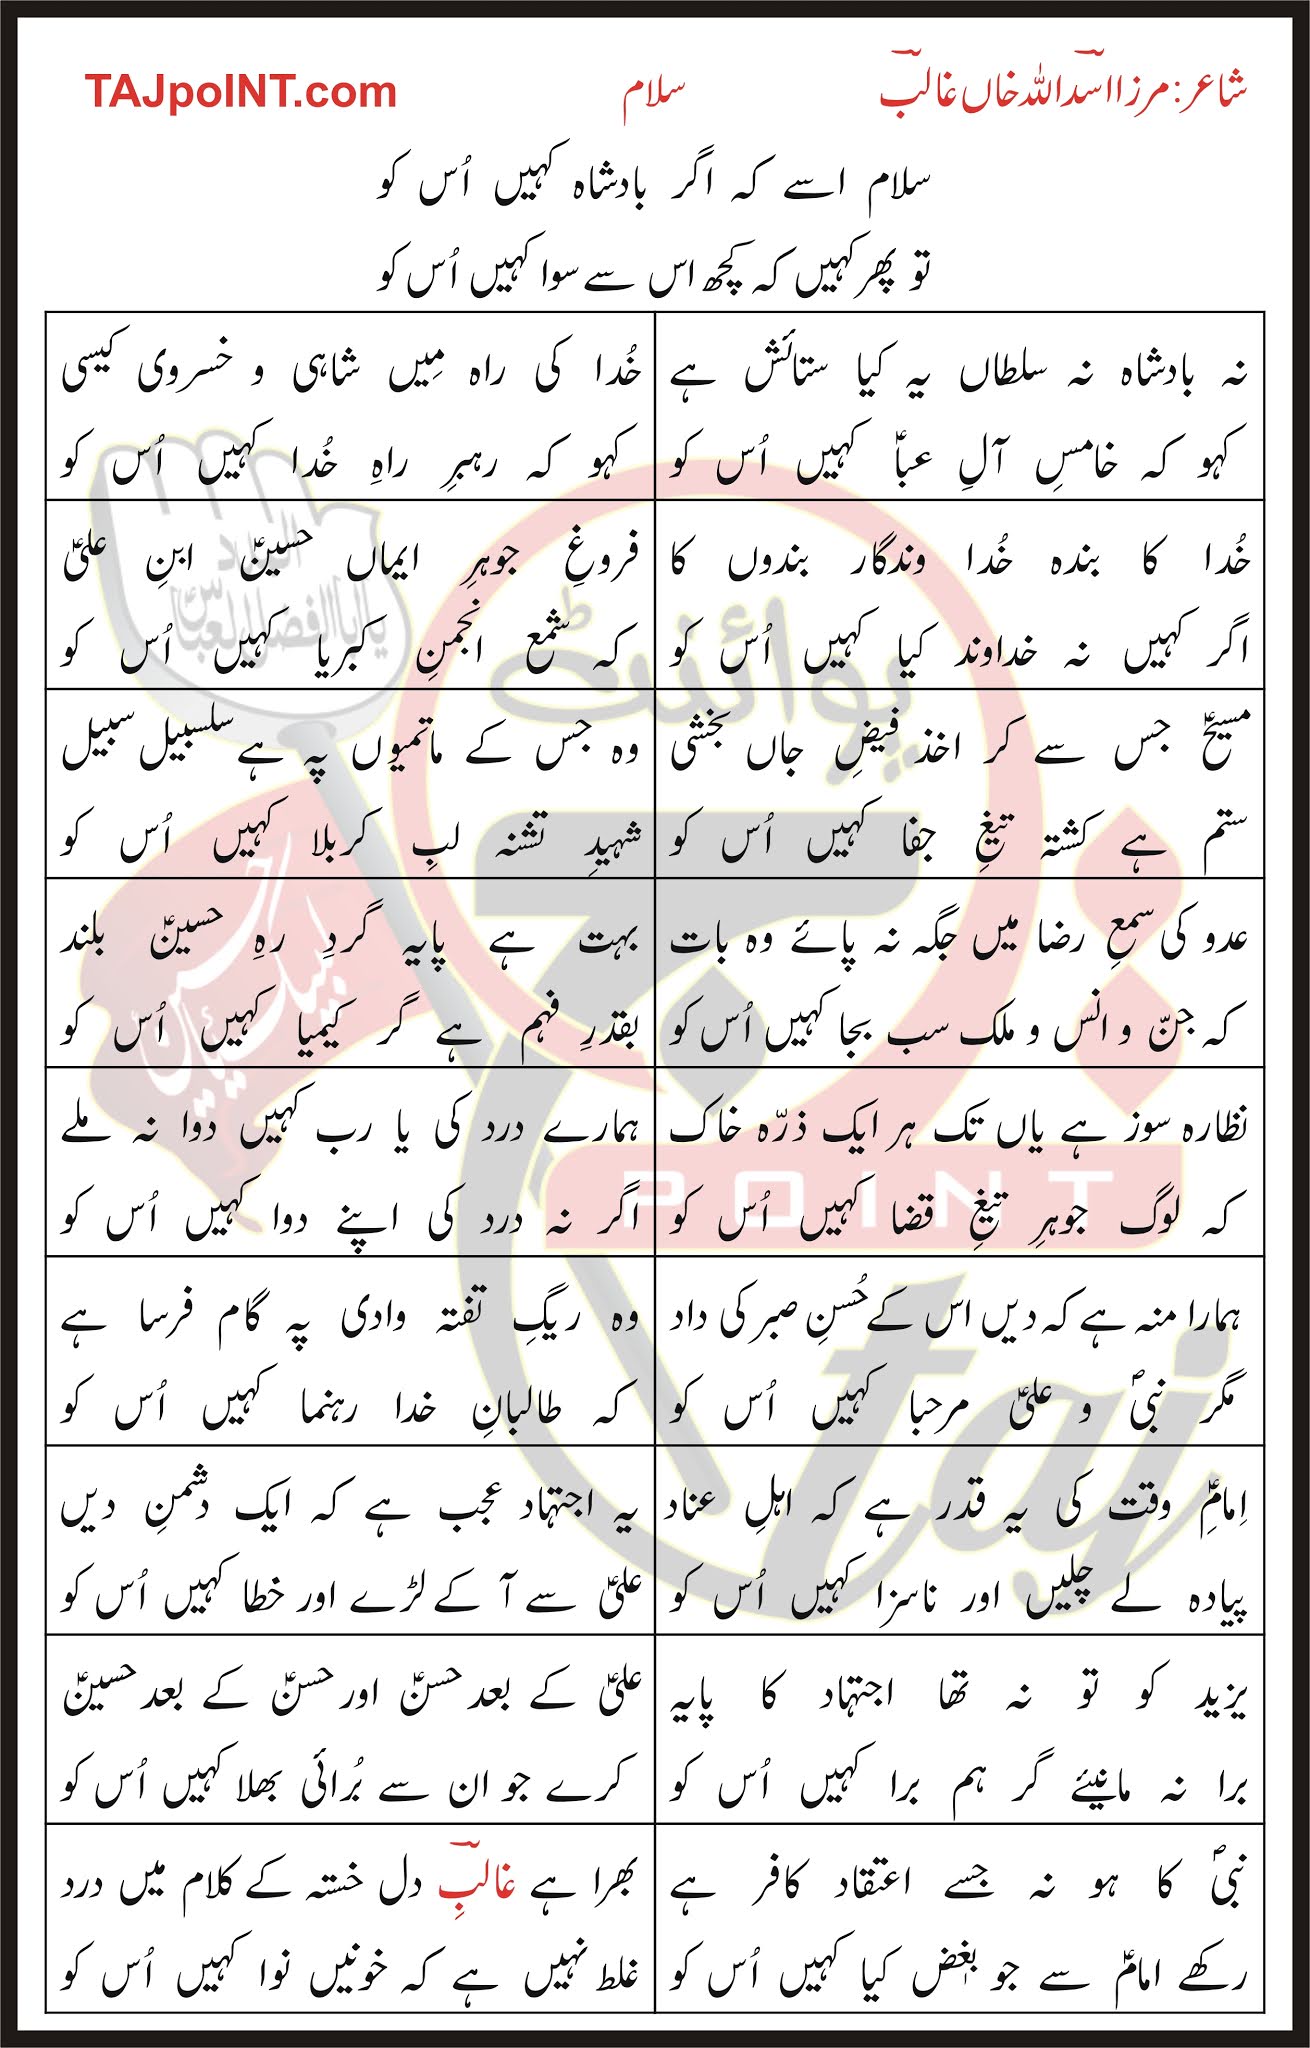 شاعر: مرزا اسدؔ اللہ خاں غالبؔ
سلام
TAJpoINT.com
سلام اسے کہ اگر بادشاہ کہیں اُس کو
تو پھر کہیں کہ کچھ اس سے سوا کہیں اُس کو
نہ بادشاہ نہ سلطاں یہ کیا ستائش ہے
کہو کہ خامسِ آلِ عباؑ کہیں اُس کو
خُدا کی راہ مِیں شاہی و خسروی کیسی
کہو کہ رہبرِ راہِ خُدا کہیں اُس کو
خُدا کا بندہ خُدا وندگار بندوں کا
اگر کہیں نہ خداوند کیا کہیں اُس کو
فروغِ جوہرِ ایماں حسینؑ ابنِ علیؑ
کہ شمع انجمنِ کبریا کہیں اُس کو
مسیحؑ جس سے کر اخذ فیضِ جاں بخشی
ستم ہے کشتہ تیغِ جفا کہیں اُس کو
وہ جس کے ماتمیوں پہ ہے سلسبیل سبیل
شہیدِ تشنہ لبِ کربلا کہیں اُس کو
عدو کی سمعِ رضا میں جگہ نہ پائے وہ بات
کہ جنّ و انس و ملک سب بجا کہیں اُس کو
بہت ہے پایہ گردِ رہِ حسینؑ بلند
بقدرِ فہم ہے گر کیمیا کہیں اُس کو
نظارہ سوز ہے یاں تک ہر ایک ذرّہ خاک
کہ لوگ جوہرِ تیغِ قضا کہیں اُس کو
ہمارے درد کی یا رب کہیں دوا نہ ملے
اگر نہ درد کی اپنے دوا کہیں اُس کو
ہمارا منہ ہے کہ دیں اس کے حُسنِ صبر کی داد
مگر نبیؐ و علیؑ مرحبا کہیں اُس کو
وہ ریگِ تفتہ وادی پہ گام فرسا ہے
کہ طالبانِ خدا رہنما کہیں اُس کو
اِمامِؑ وقت کی یہ قدر ہے کہ اہلِ عناد
پیادہ لے چلیں اور ناسزا کہیں اُس کو
یہ اجتہاد عجب ہے کہ ایک دشمنِ دیں
علیؑ سے آ کے لڑے اور خطا کہیں اُس کو
یزید کو تو نہ تھا اجتہاد کا پایہ
برا نہ مانیئے گر ہم برا کہیں اُس کو
علیؑ کے بعد حسنؑ اور حسنؑ کے بعد حسینؑ
کرے جو ان سے بُرائی بھلا کہیں اُس کو
نبیؐ کا ہو نہ جسے اعتقاد کافر ہے
رکھے امامؑ سے جو بغض کیا کہیں اُس کو
بھرا ہے غالبِؔ دل خستہ کے کلام میں درد
غلط نہیں ہے کہ خونیں نوا کہیں اُس کو
پوائنٹ
POINT
taj